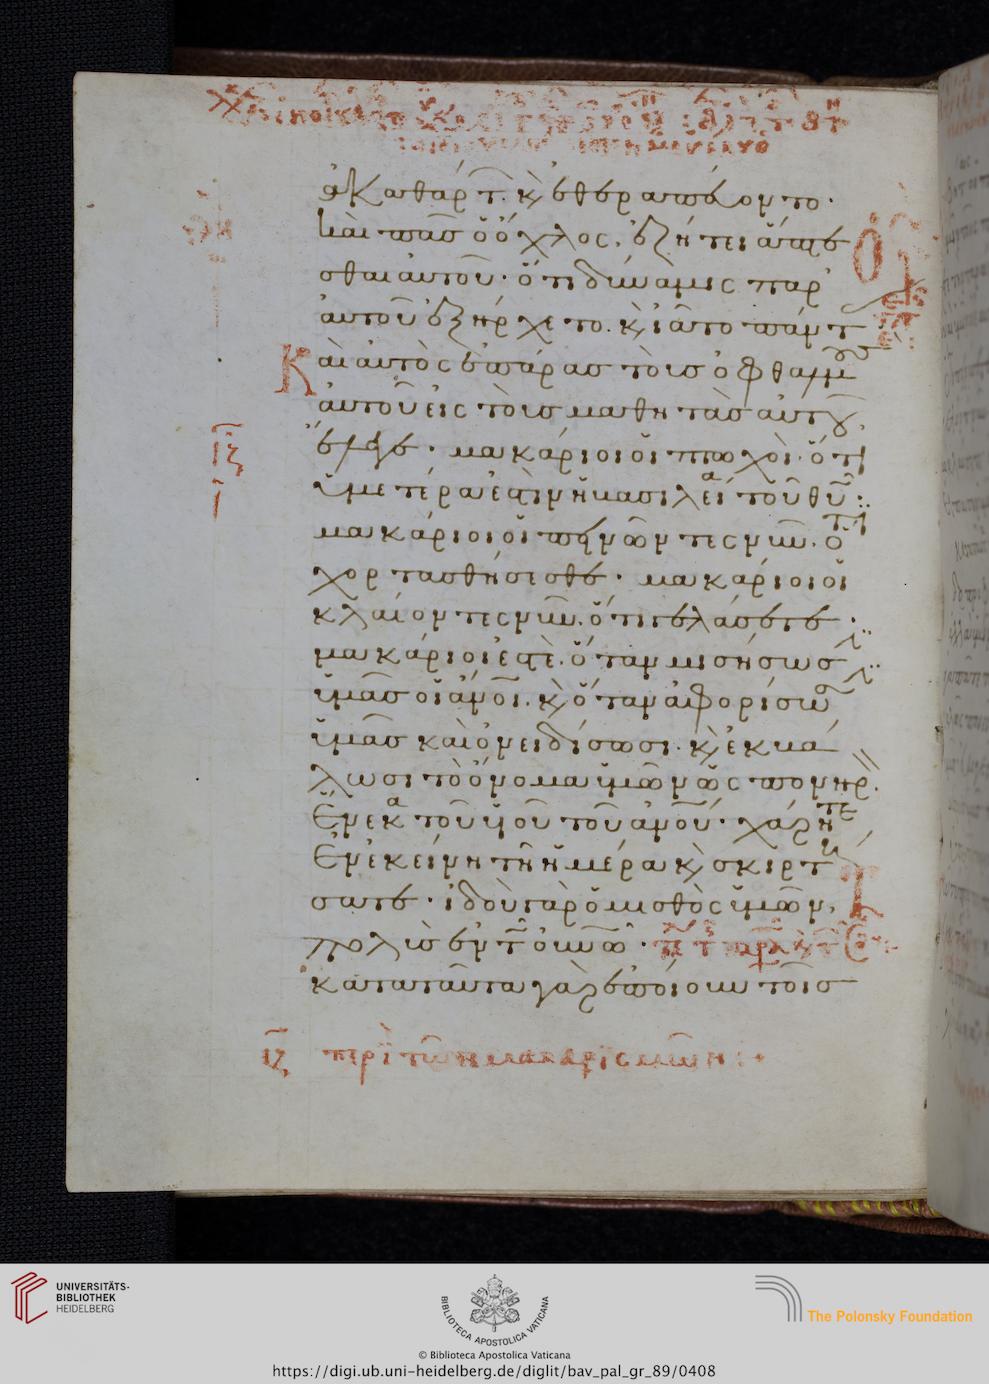 ἀκαθάρτ. κ ἐθεραπεύοντο·
καὶ πᾶσ ὁ ὄχλος, ἐζήτει ἅπτε
σθαι αὐτοῦ· ὅτι δύναμις παρ
αὐτοῦ ἐξήρχετο. κ ἰᾶτο πάντ
Καὶ αὐτὸς ἐπάρασ τοὺσ ὀφθαλμ
αὐτοῦ εἰς τοὺσ μαθητὰσ αὐτοῦ,
ἔλεγε· μακάριοι οἱ πτωχοὶ· ὅτι
ὑμετέρα ἐστὶν ἡ βασιλεία τοῦ θυ:
μακάριοι οἱ πεινῶντες νῦν. ὅτι
χορτασθήσεσθε· μακάριοι οἱ
κλαίοντες νῦν. ὅτι γελάσετε·
μακάριοι ἐστὲ. ὅταν μισήσωσ
ὑμᾶσ οἱ ἀνοι. κ ὅταν ἀφορίσω
ὑμᾶσ καὶ ὀνειδίσωσι. κ ἐκβά
λωσι τὸ ὄνομα ὑμῶν ὡς πονηρ.
Ἕνεκα τοῦ υἱοῦ τοῦ ἀνου· χάρητε
Ἐν ἐκείνη τῆ ἡμέρα κ σκιρτή
σατε· ἰδοὺ γὰρ ὁ μισθὸς ὑμῶν,
πολὺσ ἐν τ οὐνω·
κατὰ ταῦτα γὰρ ἐποίουν τοῖσ
ιζ
ι
ιζ περὶ τῶν μακαρισμῶν:
UNIVERSITÄTS-
BIBLIOTHEK
HEIDELBERG
BIBLIOTECA APOSTOLICA VATICANA
The Polonsky Foundation
© Biblioteca Apostolica Vaticana
https://digi.ub.uni-heidelberg.de/diglit/bav_pal_gr_89/0408